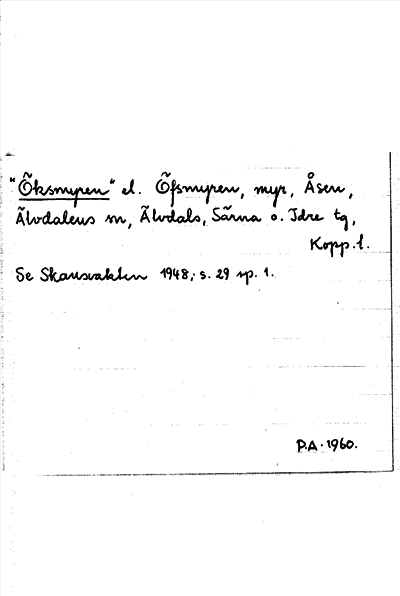 "Öksmyren" el. Öfsmyren, myr, Åsen,
Älvdalens sn, Älvdals, Särna o. Idre tg,
Kopp. l.
Se Skansvakten 1948, s. 29 sp. 1.
P.A. 1960.